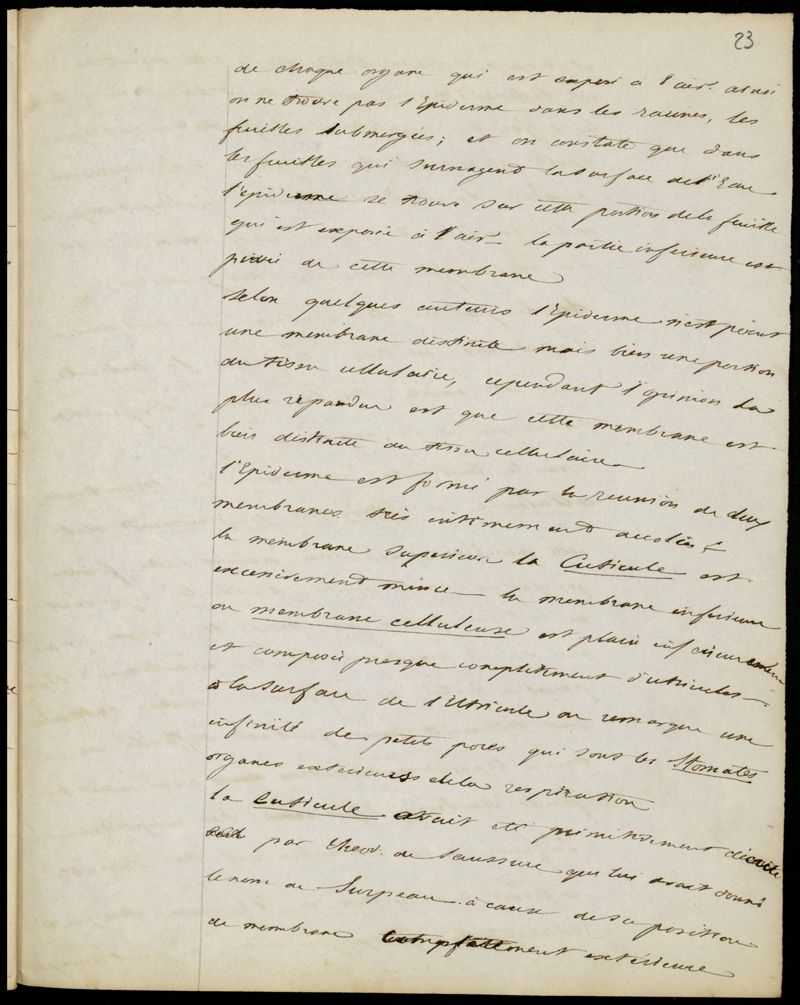 23
de chaque organe qui est exposé à l'air. ainsi
on ne trouve pas l'Epiderme dans les racines, les
feuilles submergées; et on constate que dans
les feuilles qui surnagent la surface de l'Eau
l'epiderme se trouve sur cette portion de la feuille
qui est exposée à l'air - la partie inferieure est
privée de cette membrane
Selon quelques auteurs l'Epiderme n'est point
une membrane distincte mais bien une portion
du tissu cellulaire, cependant l'opinion la
plus répandue est que cette membrane est
bien distincte du tissu cellulaire -
l'Epiderme est formé par la reunion de deux
membranes très intimement accolées
la membrane superieure la Cuticule est
excessivement mince - la membrane inferieure
ou membrane celluleuse est plain
et composée presque completement d'utricules -
à la surface de l'Utricule on remarque une
infinité de petits pores qui sont les Stomates
organes exterieurs de la respiration
la cuticule avait été primitivement décrite
par Theod. de Saussure qui lui avait donné
le nom de Surpeau à cause de sa position
de membrane complettement extérieure